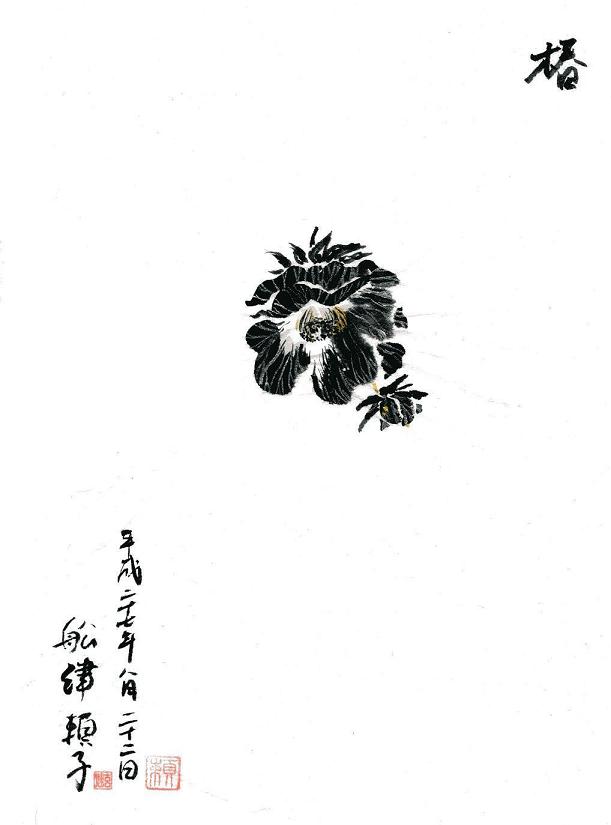 椿
平成二十七年八月二十二日
船津頼子
頼